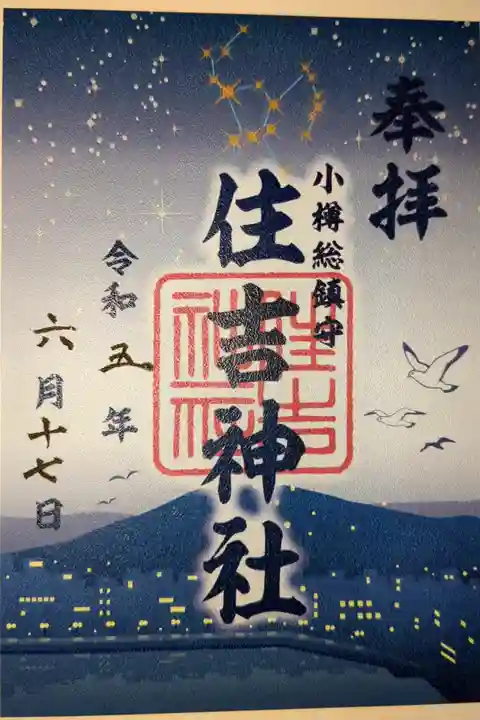 奉拝
小樽総鎮守
住吉神社
住吉神社
令和五年
六月十七日